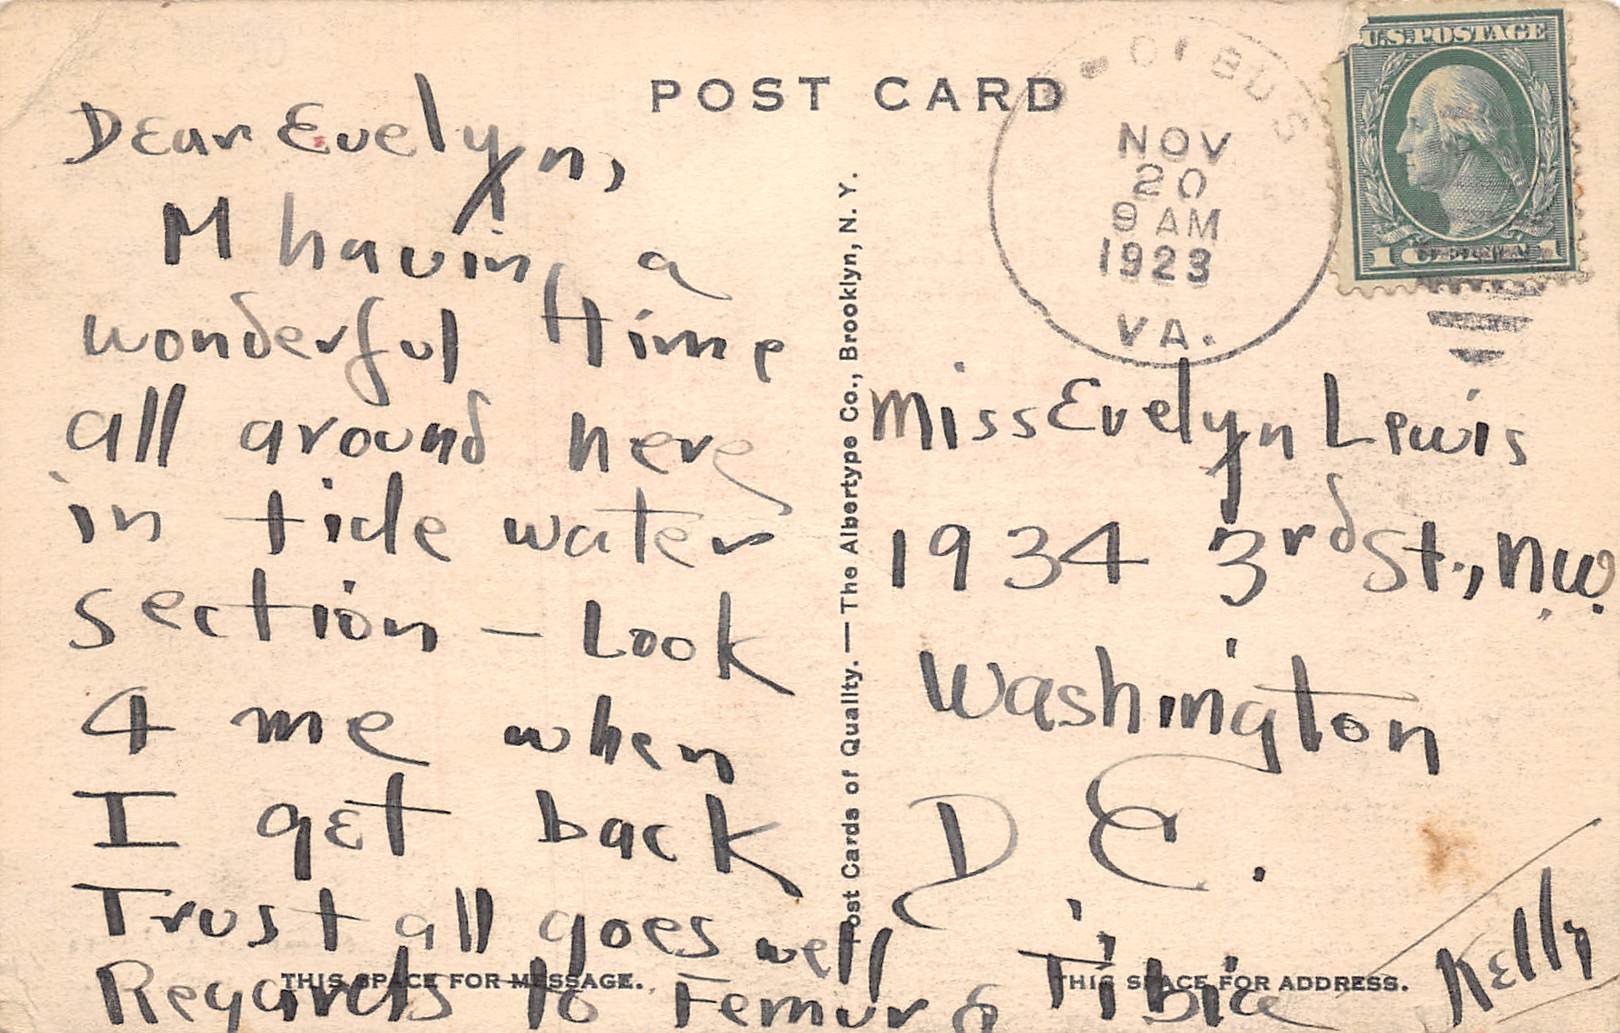 POST CARD
NOV
20
9 AM
1923
VA.
U.S. POSTAGE
Dear Evelyn,
M having a
wonderful time
all around here
in tide water
section – Look
4 me when
I get back
Trust all goes well
Regards to Femur & Tibia
Kelly
Post Cards of Quality. — The Albertype Co., Brooklyn, N. Y.
Miss Evelyn Lewis
1934 3rd St., NW.
Washington
D. C.
THIS SPACE FOR MESSAGE.
THIS SPACE FOR ADDRESS.